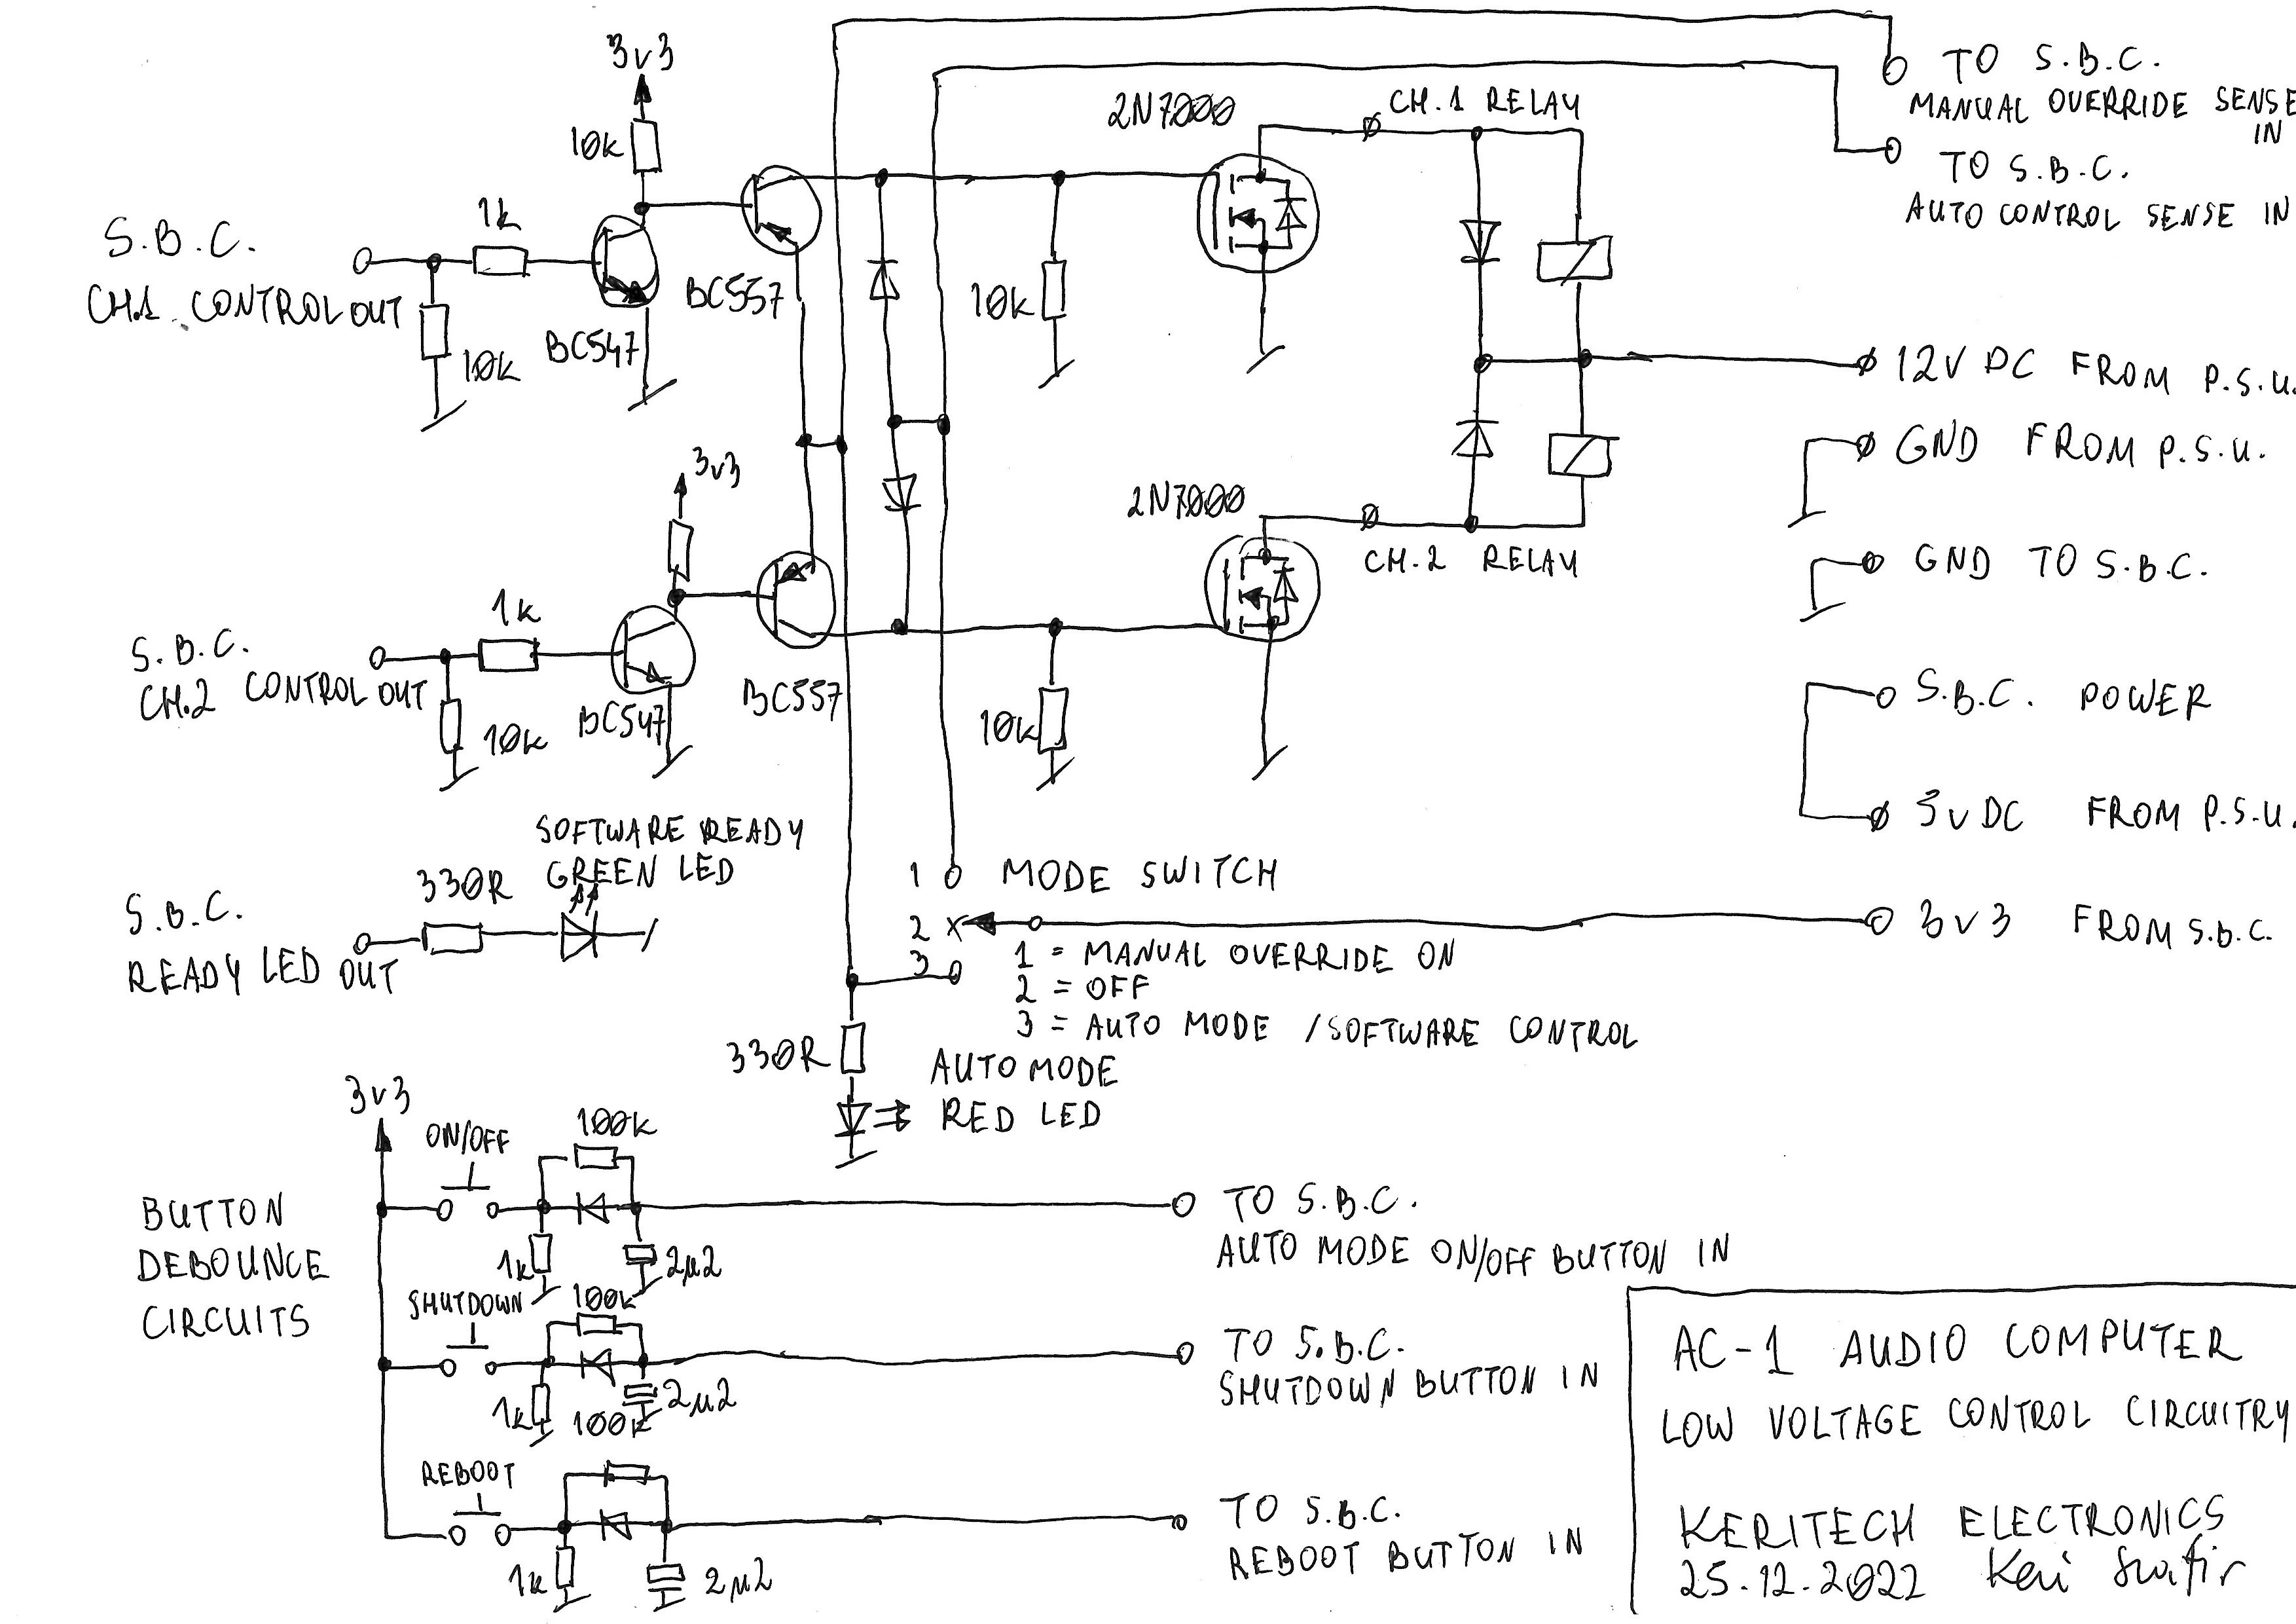 3v3
10k
1k
S.B.C.
CH.1 CONTROL OUT
10k
BC547
BC557
10k
2N7000
CH.1 RELAY
TO S.B.C.
MANUAL OVERRIDE SENSE
IN
TO S.B.C.
AUTO CONTROL SENSE IN
12V DC FROM P.S.U.
GND FROM P.S.U.
GND TO S.B.C.
S.B.C. POWER
5V DC FROM P.S.U.
3v3 FROM S.B.C.
3v3
1k
S.B.C.
CH.2 CONTROL OUT
10k
BC547
BC557
10k
2N7000
CH.2 RELAY
SOFTWARE READY
GREEN LED
330R
S.B.C.
READY LED OUT
1 MODE SWITCH
2 X
3
1 = MANUAL OVERRIDE ON
2 = OFF
3 = AUTO MODE / SOFTWARE CONTROL
330R
AUTO MODE
RED LED
3v3
ON/OFF
100k
BUTTON
DEBOUNCE
CIRCUITS
1k
2µ2
TO S.B.C.
AUTO MODE ON/OFF BUTTON IN
SHUTDOWN
100k
1k
2µ2
TO S.B.C.
SHUTDOWN BUTTON IN
REBOOT
100k
1k
2µ2
TO S.B.C.
REBOOT BUTTON IN
AC-1 AUDIO COMPUTER
LOW VOLTAGE CONTROL CIRCUITRY
KERITECH ELECTRONICS
25.12.2022 Keri Szafir